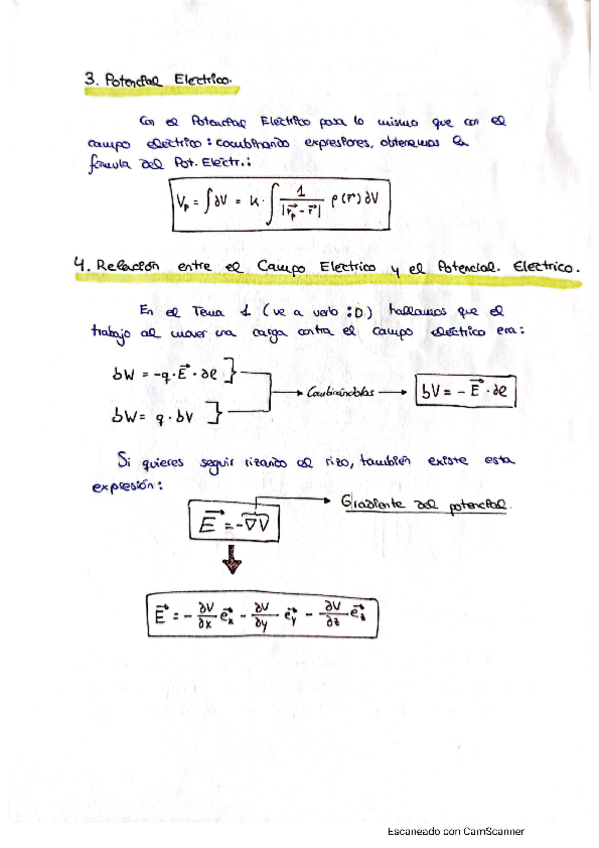 3. Potencial Electrico.
Con el Potencial Electrico pasa lo mismo que con el
campo electrico: combinando expresiones, obtenemos la
formula del Pot. Electr.:
Vp = ∫∂V = K · ∫ 1/|r⃗p - r⃗| ρ(r) ∂V
4. Relación entre el Campo Electrico y el Potencial. Electrico.
En el Tema 1 (ve a verlo :D) hallamos que el
trabajo al mover una carga contra el campo eléctrico era:
δW = -q · E⃗ · ∂e
Combinándolas
δV = - E⃗ · ∂e
δW = q · δV
Si quieres seguir rizando el rizo, también existe esta
expresión:
Gradiente del potencial.
E⃗ = -∇V
E⃗ = - ∂V/∂x e⃗x - ∂V/∂y e⃗y - ∂V/∂z e⃗z
Escaneado con CamScanner